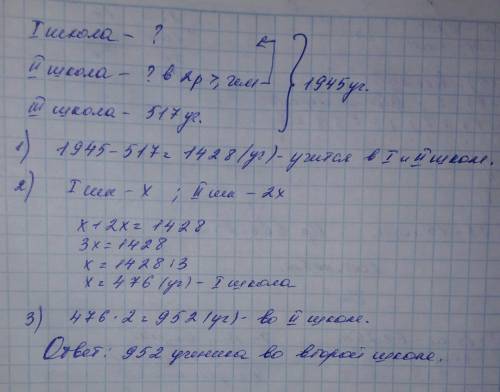 I школа - ?
II школа - ? в 2р >, чем
III школа - 517 уг.
1945 уг.
1) 1945 - 517 = 1428 (уг) - учится в I и II школе.
2) I шк - x ; II шк - 2x
x + 2x = 1428
3x = 1428
x = 1428 : 3
x = 476 (уг) - I школа
3) 476 · 2 = 952 (уг) - во II школе.
Ответ: 952 ученика во второй школе.